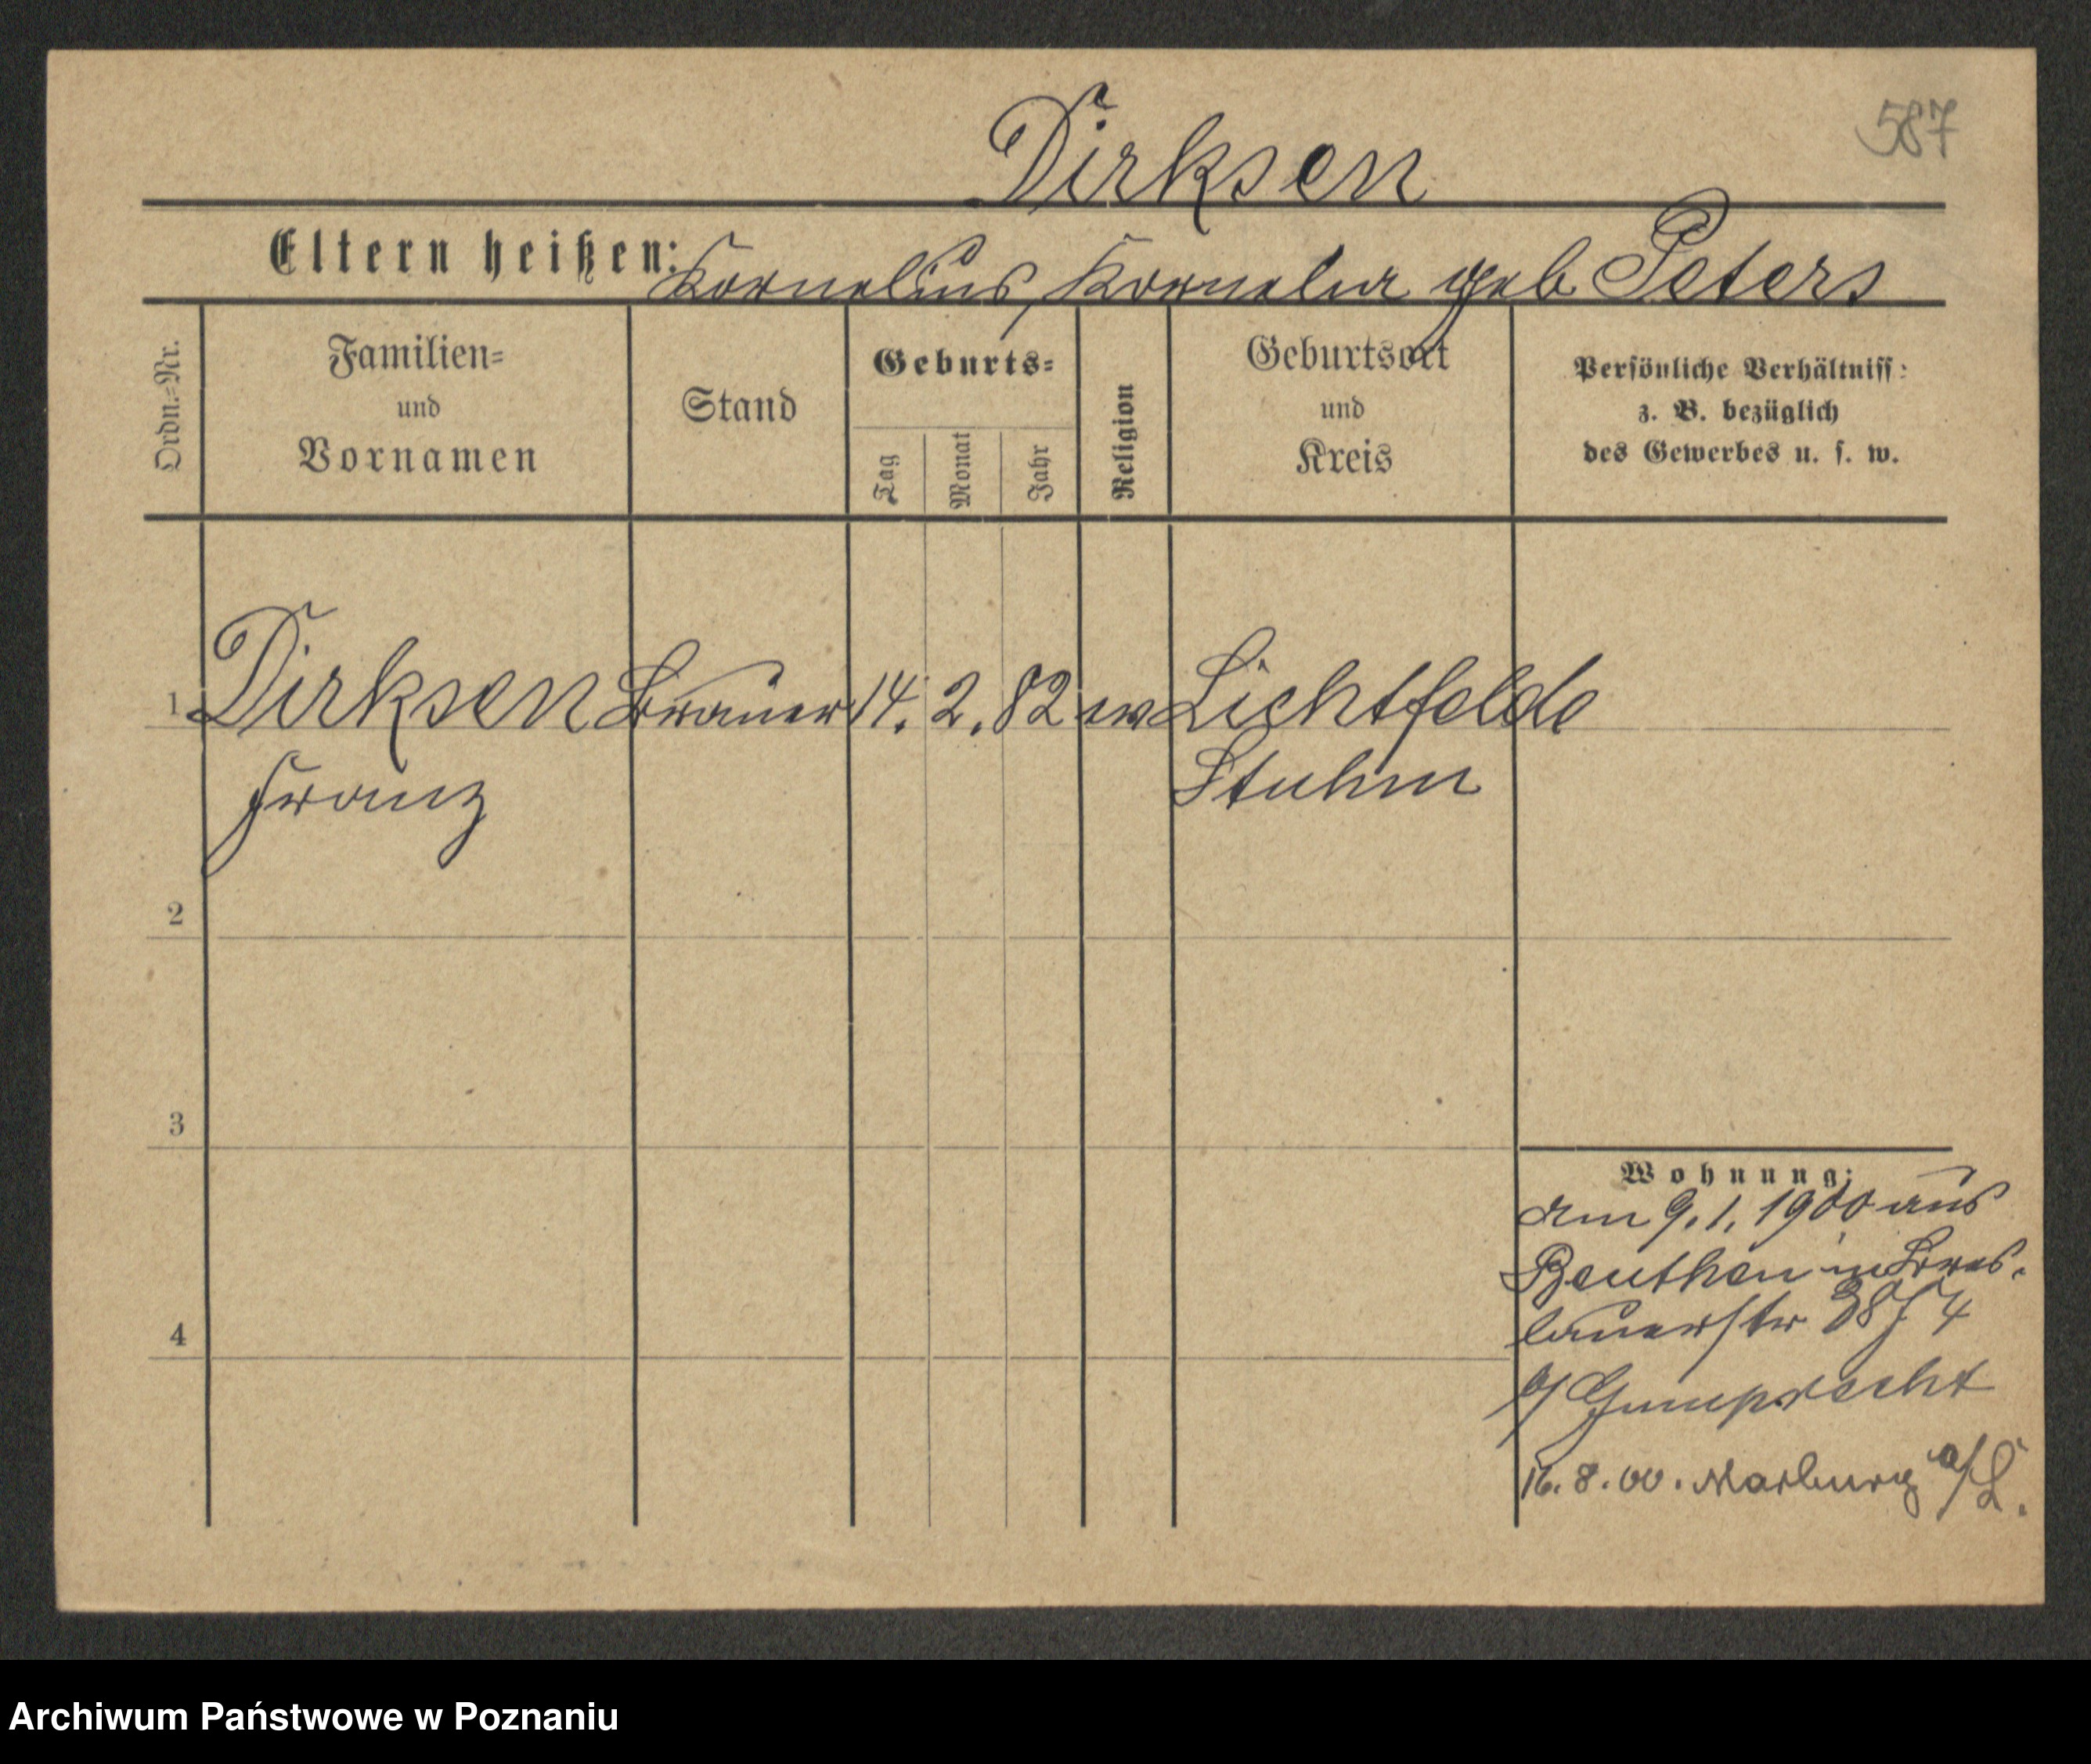 587
Dirksen
Eltern heißen: Kornelius, Kornelia geb Peters
Ordn.=Nr.
Familien=
und
Vornamen
Stand
Geburts=
Tag
Monat
Jahr
Religion
Geburtsort
und
Kreis
Persönliche Verhältniss:
z. B. bezüglich
des Gewerbes u. s. w.
1 Dirksen Brauer 14. 2. 82 ev Lichtfelde
Franz Stuhm
2
3
4
Wohnung:
Am 9. 1. 1900 aus
Beuthen in Bres-
lauerstr 38
b/ Gumprecht
16. 8. 00. Marburg a/L.
Archiwum Państwowe w Poznaniu